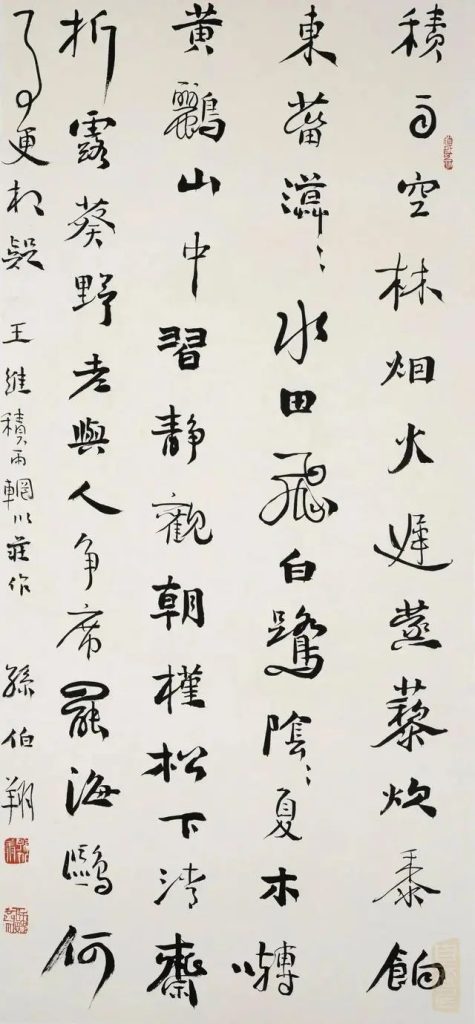 積雨空林烟火遲蒸藜炊黍餉
東菑漠〻水田飛白鷺陰〻夏木囀
黄鸝山中習靜觀朝槿松下清齋
折露葵野老與人争席罷海鷗何
事更相疑 王維積雨輞川莊作 孫伯翔